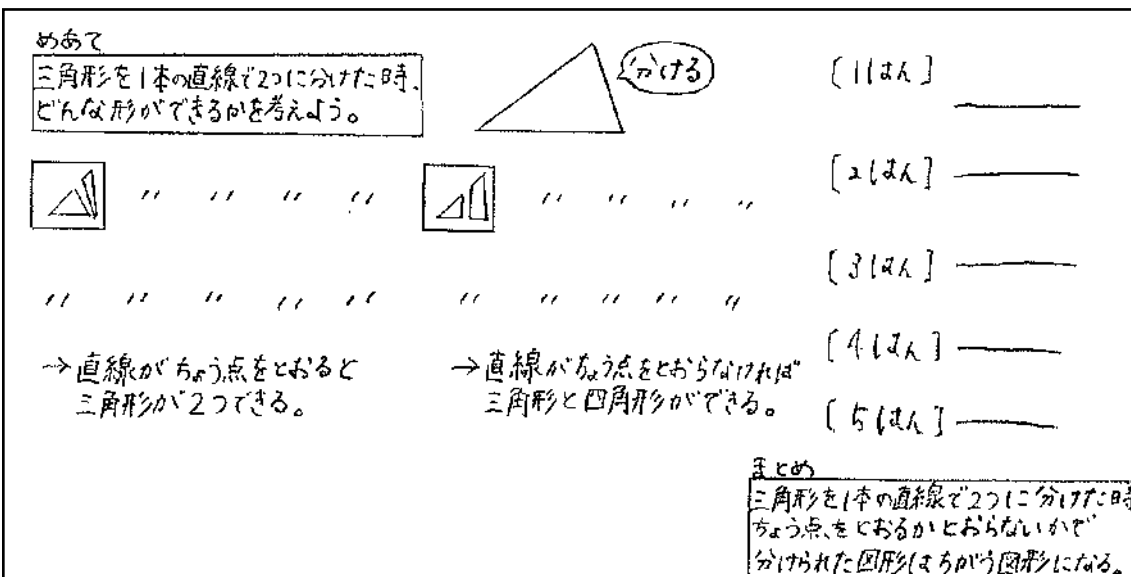 めあて
三角形を1本の直線で2つに分けた時、
どんな形ができるかを考えよう。
分ける
〃 〃 〃 〃
〃 〃 〃 〃
〃 〃 〃 〃 〃
〃 〃 〃 〃 〃
→直線がちょう点をとおると
三角形が2つできる。
→直線がちょう点をとおらなければ
三角形と四角形ができる。
[1はん]
[2はん]
[3はん]
[4はん]
[5はん]
まとめ
三角形を1本の直線で2つに分けた時
ちょう点をとおるかとおらないかで
分けられた図形はちがう図形になる。